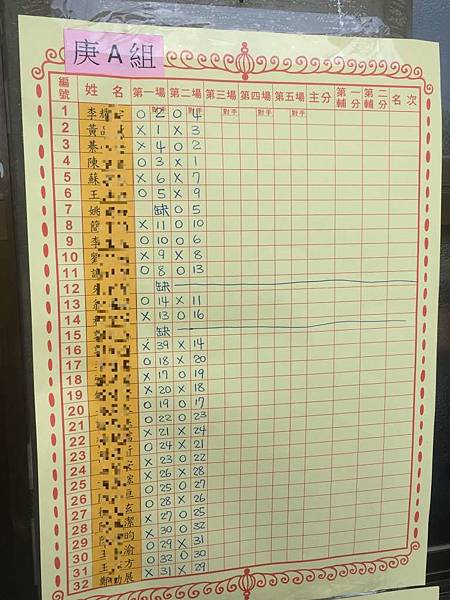 庚A組
編號 姓名 第一場 第二場 第三場 第四場 第五場 主分 第一輔分 第二輔分 名次
對手 對手 對手 對手 對手
1 李 O 2 O 4
2 黃 X 1 X 3
3 X 4 O 2
4 陳 O 3 X 1
5 蘇 X 6 X 7
6 王 O 5 X 9
7 姚 缺 O 5
8 簡 X 11 O 10
9 李 O 10 O 6
10 劉 X 9 X 8
11 O 8 O 13
12 缺
13 O 14 X 11
14 X 13 O 16
15 缺
16 X 39 X 14
17 O 18 X 20
18 X 17 O 19
19 X 20 X 18
20 O 19 O 17
21 O 22 O 23
22 X 21 X 24
23 O 24 X 21
24 X 23 O 22
25 X 26 X 28
26 O 25 O 27
27 O 28 X 26
28 X 27 O 25
29 潔 X 30 O 32
30 昀 O 29 X 31
31 渝 O 32 O 30
32 鄭 展 X 31 X 29